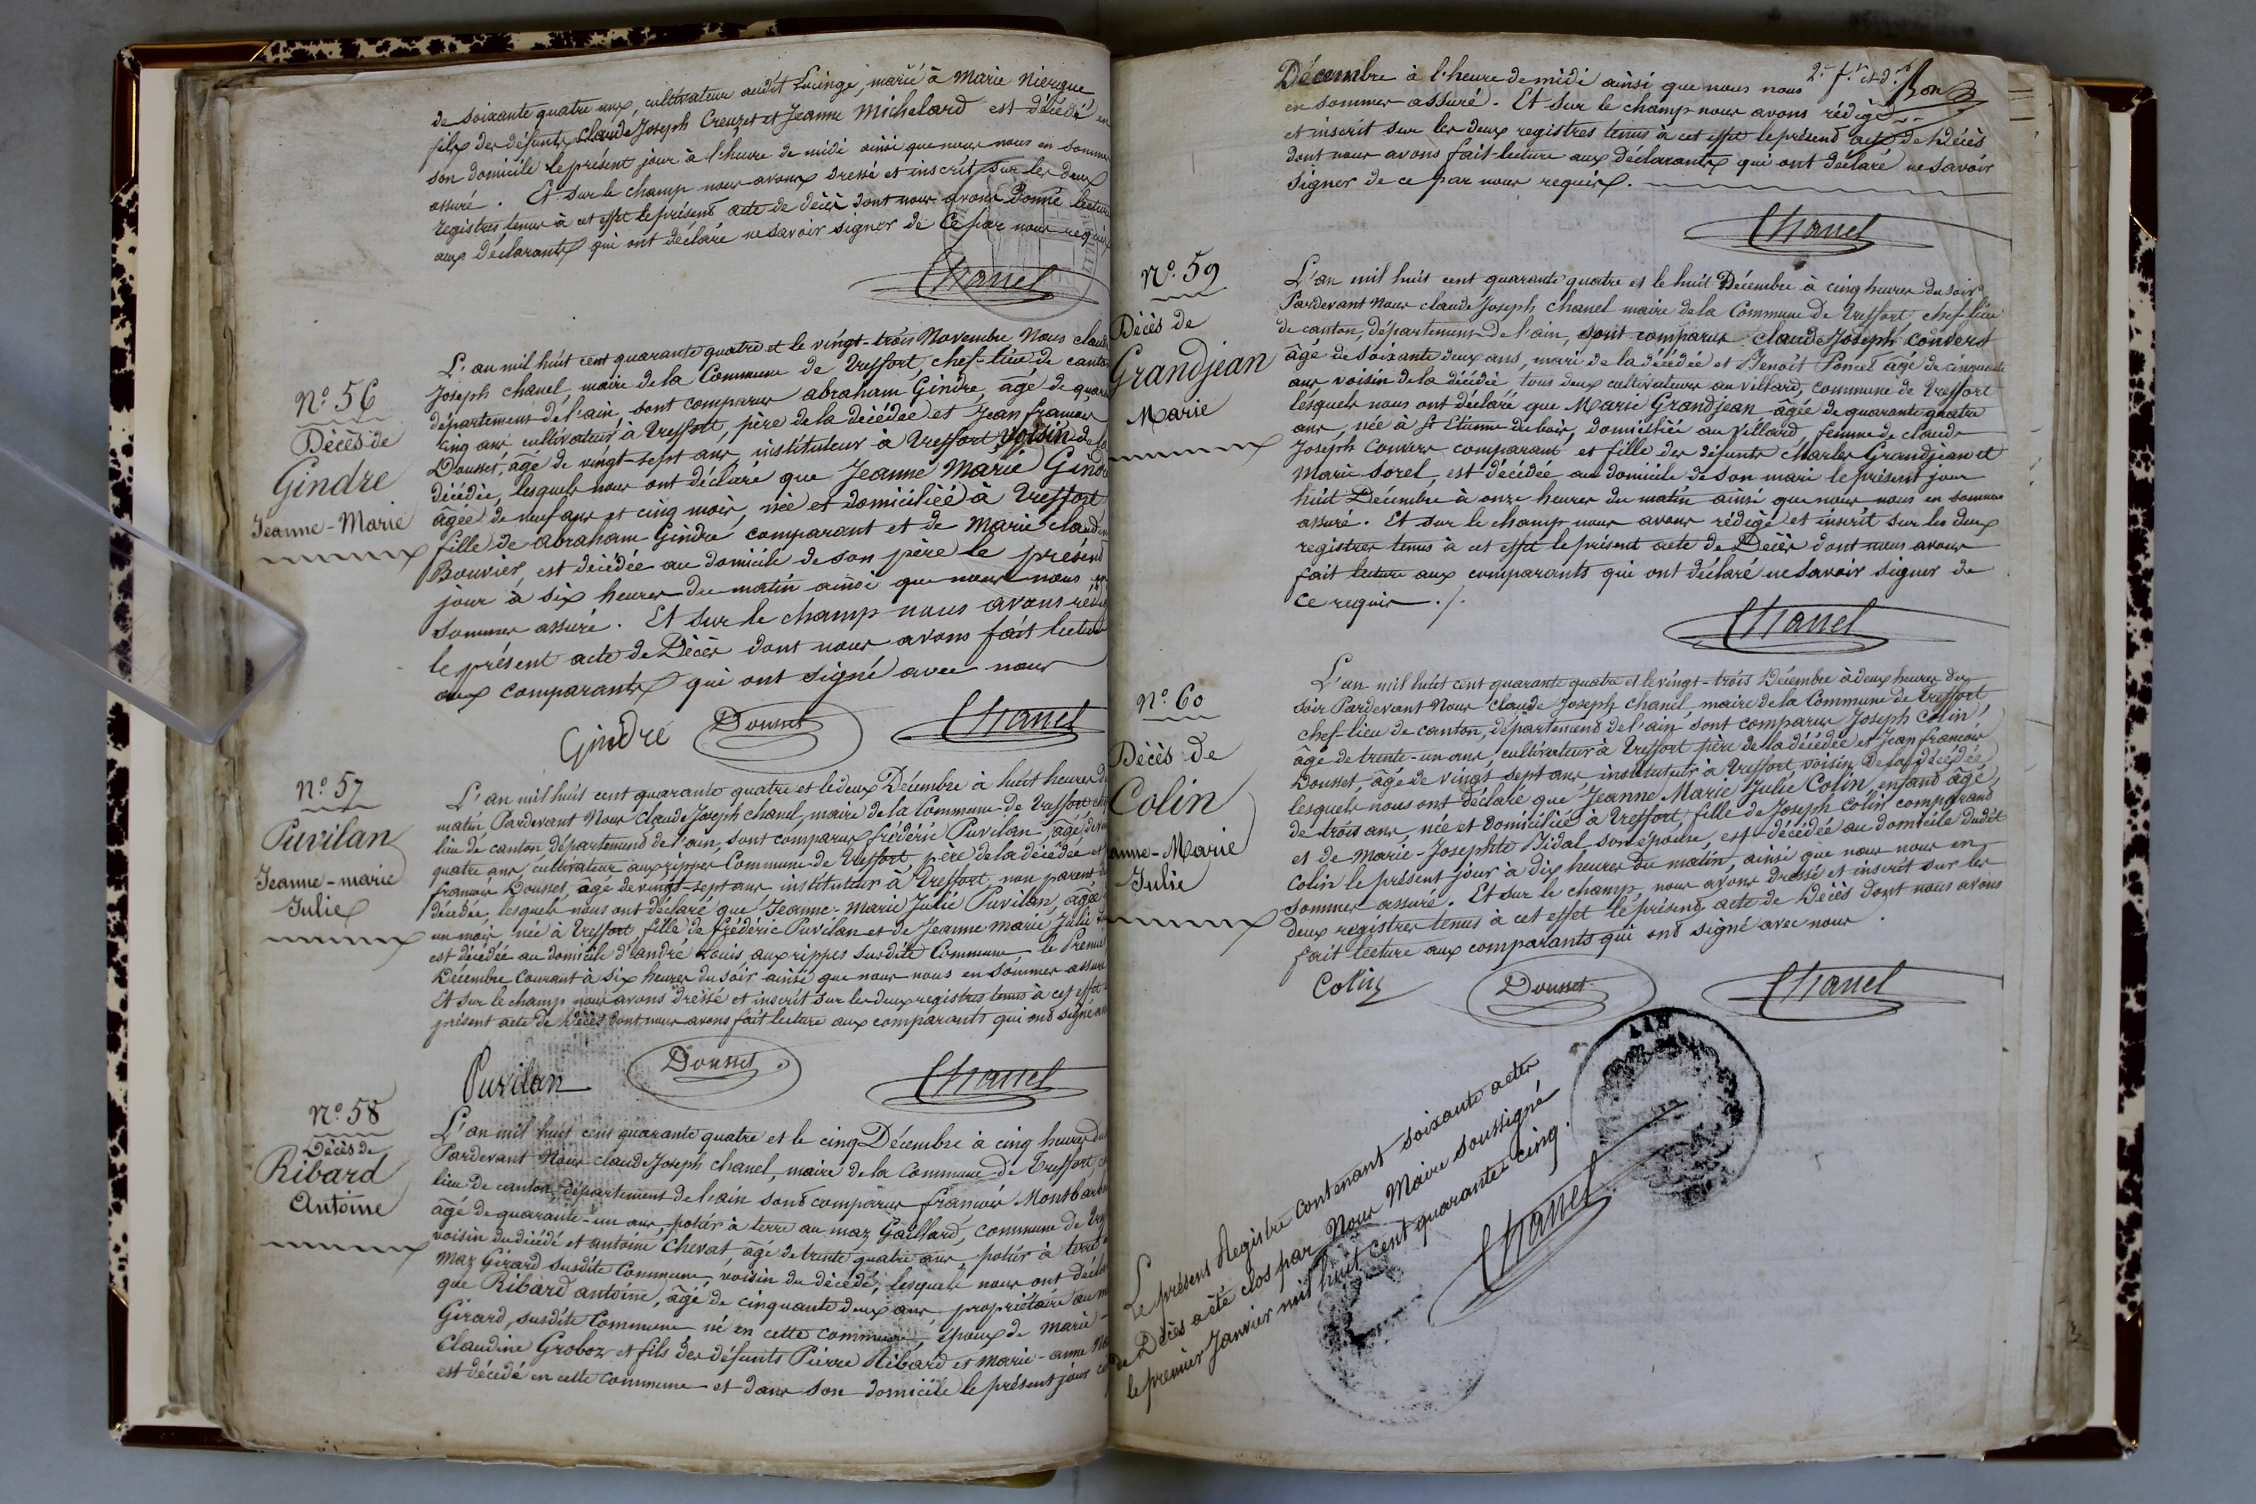 de soixante quatre ans, cultivateur audit Lucinge, marié à Marie Niergue
fils des défunts Claude Joseph Creuzet et Jeanne Michelard est décédé en
son domicile le présent jour à l'heure de midi ainsi que nous nous en sommes
assuré. Et sur le champ nous avons dressé et inscrit sur les deux
registres tenus à cet effet le présent acte de décès dont nous avons donné lecture
aux déclarants qui ont déclaré ne savoir signer de ce par nous requis
Chanel
N.o 56
Décès de
Gindre
Jeanne-Marie
L'an mil huit cent quarante quatre et le vingt-trois Novembre Nous claude
Joseph chanel, maire de la Commune de Treffort, chef-lieu de canton
département de l'ain, sont comparus abraham Gindre, âgé de quarante
cinq ans cultivateur à Treffort, père de la décédée et Jean françois
Dousset, âgé de vingt-sept ans, instituteur à Treffort voisin de la
décédée, lesquels nous ont déclaré que Jeanne Marie Gindre
âgée de neuf ans et cinq mois, née et domiciliée à Treffort
fille de abraham Gindre comparant et de Marie claudine
Bouvier, est décédée au domicile de son père le présent
jour à six heures du matin ainsi que nous nous en
sommes assuré. Et sur le champ nous avons rédigé
le présent acte de Décès dont nous avons fait lecture
aux comparants qui ont signé avec nous
Gindre Dousset Chanel
N.o 57
Puvilan
Jeanne-marie
Julie
L'an mil huit cent quarante quatre et le deux Décembre à huit heures du
matin, Pardevant Nous Claude Joseph chanel, maire de la Commune de Treffort chef
lieu de canton département de l'ain, sont comparus frédéric Puvilan, âgé de
quatre ans cultivateur aux rippes Commune de Treffort, père de la décédée et
françois Dousset, âgé de vingt-sept ans instituteur à Treffort non parent
décédée, lesquels nous ont déclaré que Jeanne-Marie Julie Puvilan, âgée
un mois née à Treffort, fille de frédéric Puvilan et de Jeanne Marie Julie
est décédée au domicile d'andré Louis, aux rippes susdite Commune, le Premier
Décembre Courant à six heures du soir ainsi que nous nous en sommes assuré
Et sur le champ nous avons dressé et inscrit sur les deux registres tenus à cet effet
présent acte de Décès dont nous avons fait lecture aux comparants qui ont signé
Puvilan Dousset Chanel
N.o 58
Décès de
Ribard
Antoine
L'an mil huit cent quarante quatre et le cinq Décembre à cinq heures du
Pardevant Nous claude Joseph chanel, maire de la Commune de Treffort, chef
lieu de canton département de l'ain sont comparus françois Montbarbon
âgé de quarante-un ans, potier à terre au maz Gaillard, commune de
voisin du décédé et antoine Chevat, âgé de trente quatre ans, potier à terre
maz Girard susdite Commune, voisin du décédé, lesquels nous ont déclaré
que Ribard antoine, âgé de cinquante deux ans, propriétaire au
Girard, susdite Commune né en cette commune, époux de Marie
Claudine Groboz et fils des défunts Pierre Ribard et Marie-anne
est décédé en cette commune et dans son domicile le présent jour
2.e f.et et d.er
Décembre à l'heure de midi ainsi que nous nous
en sommes assuré. Et sur le champ nous avons rédigé
et inscrit sur les deux registres tenus à cet effet le présent acte de Décès
dont nous avons fait lecture aux Déclarants qui ont déclaré ne savoir
signer de ce par nous requis.
Chanel
N.o 59
Décès de
Grandjean
Marie
L'an mil huit cent quarante quatre et le huit Décembre à cinq heures du soir
Pardevant Nous claude Joseph chanel maire de la Commune de Treffort chef-lieu
de canton, département de l'ain, sont comparus claude Joseph Convers
âgé de soixante deux ans, mari de la décédée et Benoît Poncet âgé de cinquante
ans voisin de la décédée tous deux cultivateurs au Villard, commune de Treffort
lesquels nous ont déclaré que Marie Grandjean âgée de quarante quatre
ans, née à St Etienne du bois, domiciliée au Villard, femme de claude
Joseph Convers comparant et fille des défunts Charles Grandjean et
Marie Sorel, est décédée au domicile de son mari le présent jour
huit Décembre à onze heures du matin ainsi que nous nous en sommes
assuré. Et sur le champ nous avons rédigé et inscrit sur les deux
registres tenus à cet effet le présent acte de Décès dont nous avons
fait lecture aux comparants qui ont déclaré ne savoir signer de
ce requis ./.
Chanel
N.o 60
Décès de
Colin
anne-Marie
Julie
L'an mil huit cent quarante quatre et le vingt-trois Décembre à deux heures du
soir Pardevant Nous claude Joseph chanel, maire de la Commune de Treffort
chef-lieu de canton, département de l'ain sont comparus Joseph Colin,
âgé de trente-un ans, cultivateur à Treffort père de la décédée et Jean françois
Dousset, âgé de vingt sept ans instituteur à Treffort voisin de la décédée,
lesquels nous ont déclaré que Jeanne Marie Julie Colin, enfant âgé
de trois ans, née et domiciliée à Treffort, fille de Joseph Colin comparant
et de Marie-Josephte Bidal son épouse, est décédée au domicile dudit
Colin le présent jour à dix heures du matin, ainsi que nous nous en
sommes assuré. Et sur le champ, nous avons dressé et inscrit sur les
deux registres tenus à cet effet le présent acte de Décès dont nous avons
fait lecture aux comparants qui ont signé avec nous.
Colin Dousset Chanel
Le présent Registre contenant soixante actes
de Décès a été clos par Nous Maire soussigné
le premier Janvier mil huit cent quarante cinq.
Chanel